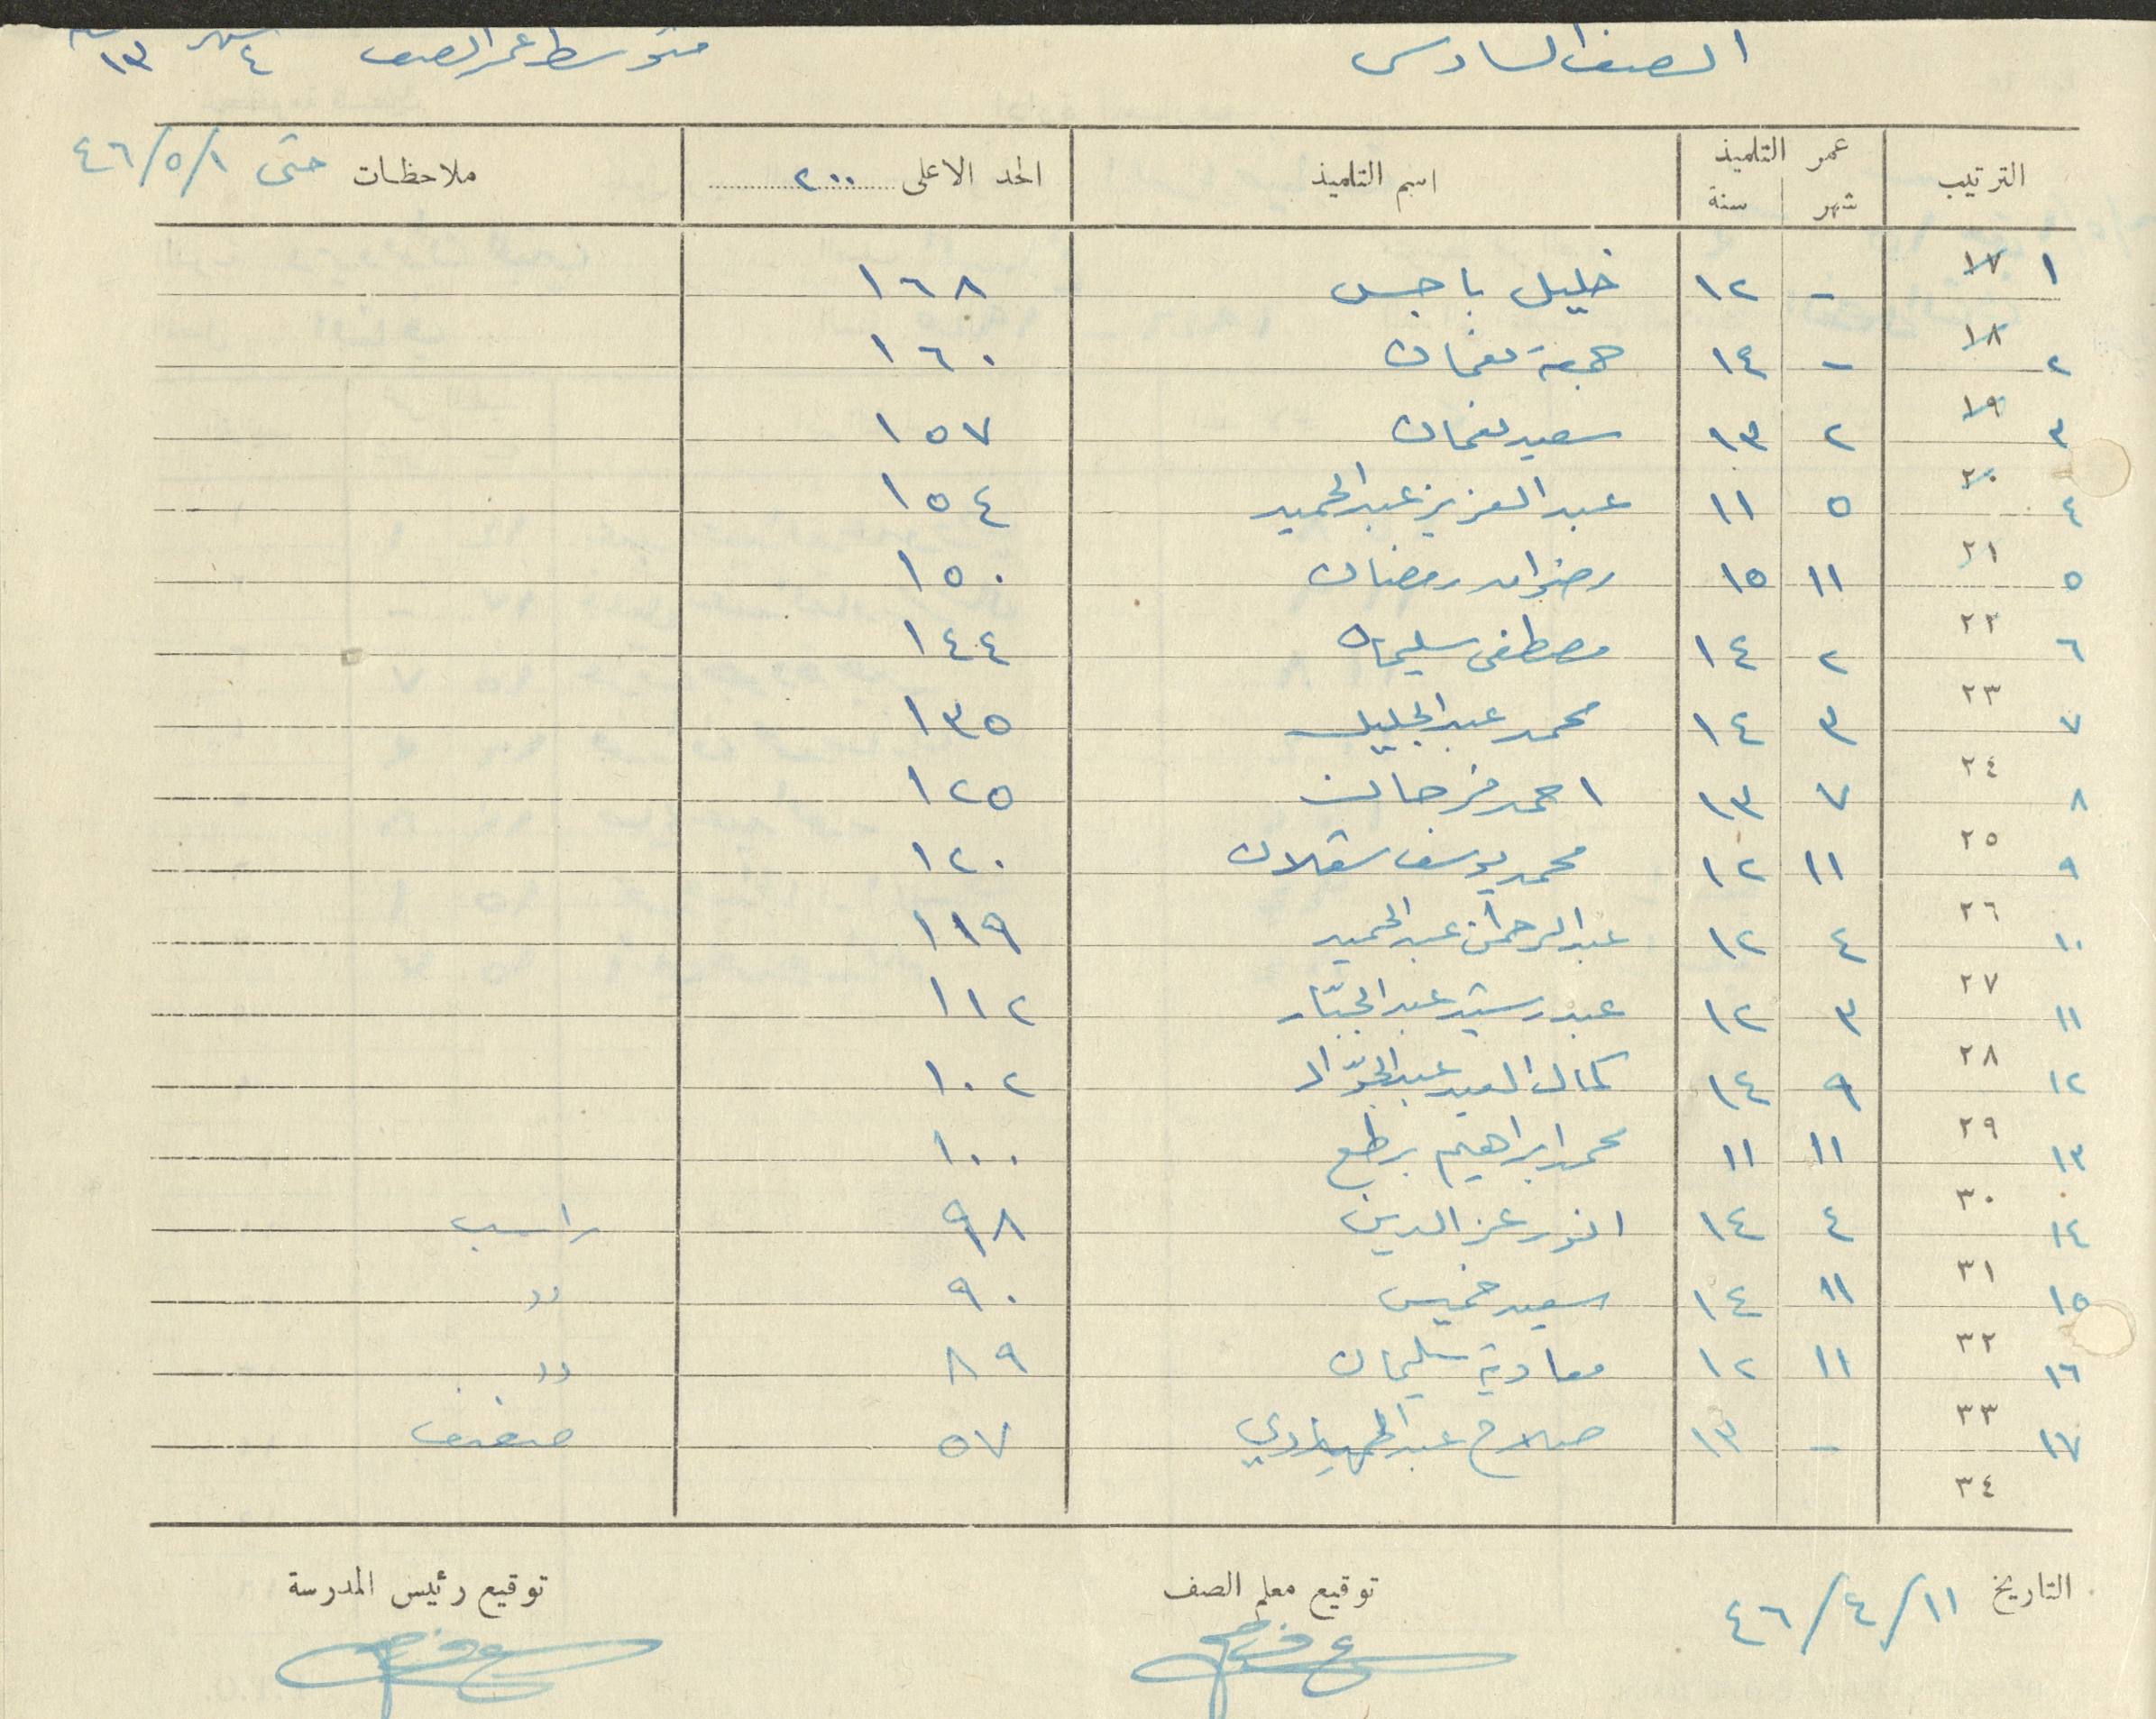 الصف السادس متوسط عمر الصف ٤ شهر ١٣
الترتيب عمر التلميذ اسم التلميذ الحد الاعلى ٢٠٠ ملاحظات حتى ٤٦/٥/١
شهر سنة
١ ١٧ - ١٢ خليل باجس ١٦٨
٢ ١٨ - ١٤ جمعة نعمان ١٦٠
٣ ١٩ ٢ ١٣ سعيد نعمان ١٥٧
٤ ٢٠ ٥ ١١ عبد العزيز عبد الحميد ١٥٤
٥ ٢١ ١١ ١٥ رضوان رمضان ١٥٠
٦ ٢٢ ٢ ١٤ مصطفى سليمان ١٤٤
٧ ٢٣ ٣ ١٤ محمد عبد الجليل ١٣٥
٨ ٢٤ ٧ ١٣ احمد فرحان ١٢٥
٩ ٢٥ ١١ ١٢ محمد يوسف شعلان ١٢٠
١٠ ٢٦ ٤ ١٢ عبد الرحمن عبد الحميد ١١٩
١١ ٢٧ ٣ ١٢ عبد رشيد عبد الجبّار ١١٢
١٢ ٢٨ ٩ ١٤ كمال العبد عبد الجوّاد ١٠٢
١٣ ٢٩ ١١ ١١ محمد ابراهيم برطع ١٠٠
١٤ ٣٠ ٤ ١٤ انور عز الدين ٩٨ راسب
١٥ ٣١ ١١ ١٤ سعيد خميس ٩٠ ״
١٦ ٣٢ ١١ ١٢ معاوية سليمان ٨٩ ״
١٧ ٣٣ - ١٣ صلاح ٥٧ ضعيف
٣٤
التاريخ ٤٦/٤/١١ توقيع معلم الصف توقيع رئيس المدرسة